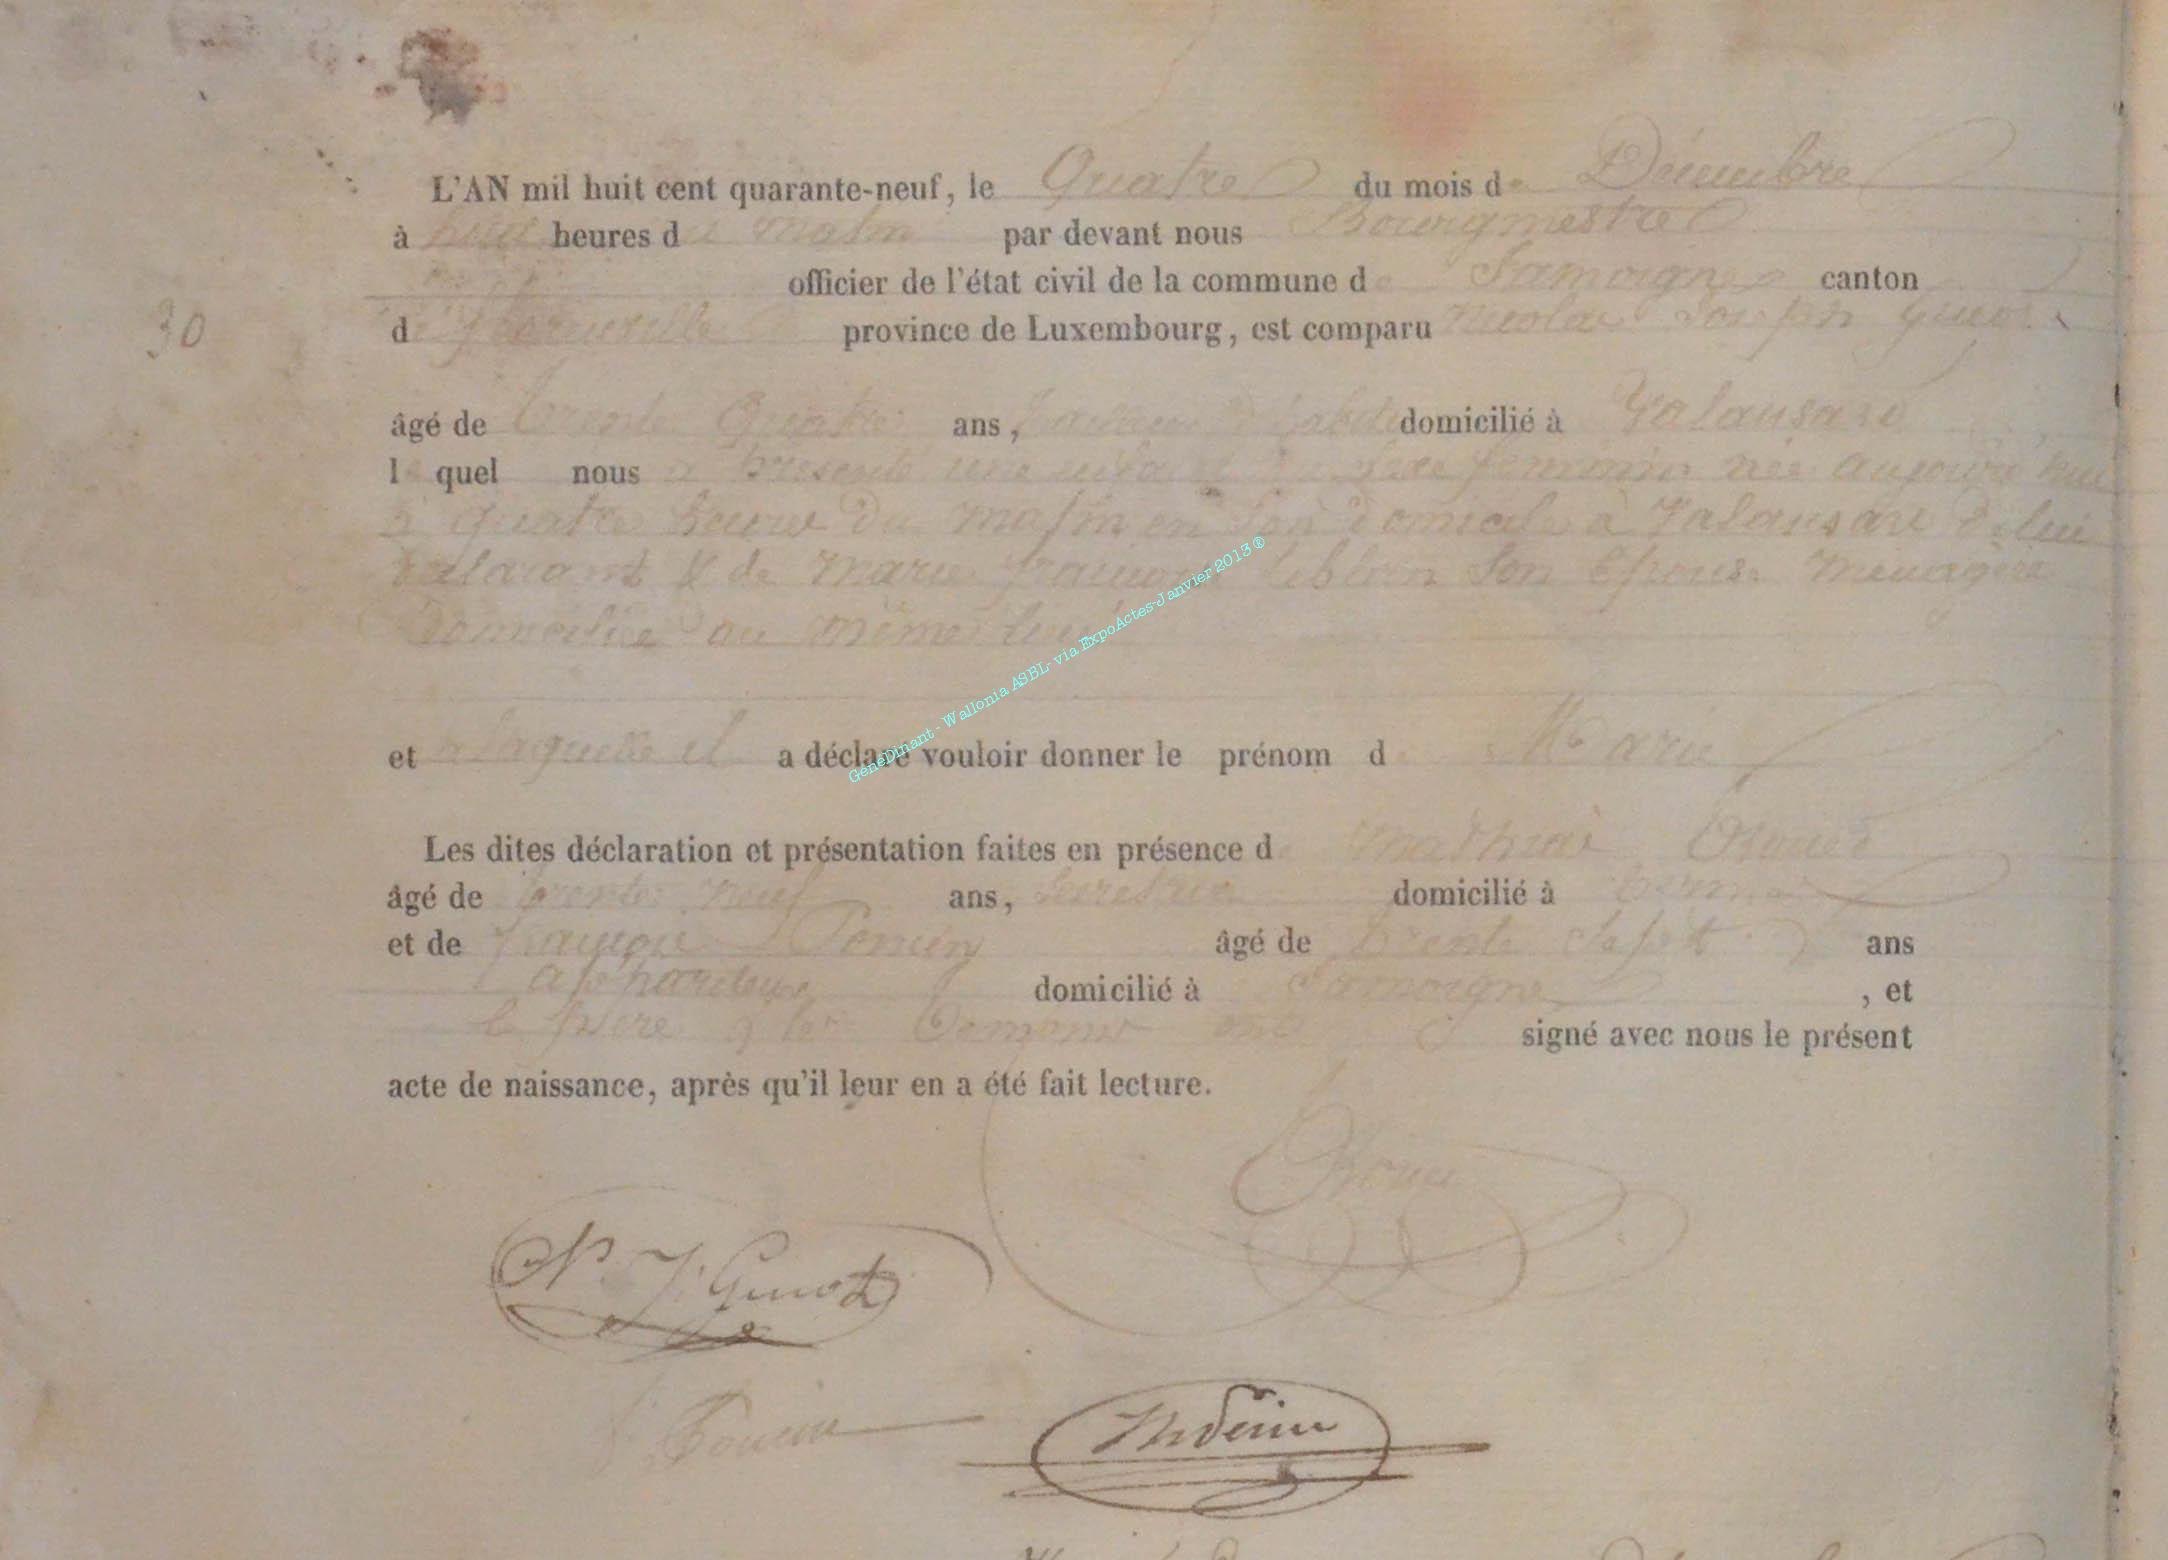 L'AN mil huit cent quarante-neuf, le Quatre du mois de Décembre
à huit heures du matin par devant nous Bourgmestre
officier de l'état civil de la commune de Jamoigne canton
de Florenville province de Luxembourg, est comparu Nicolas Joseph
âgé de trente Quatre ans, domicilié à Valansart
lequel nous a présenté une enfant de sexe féminin née aujourd'hui
à quatre heures du matin en son domicile à Valansart de lui
déclarant & de Marie françoise son Epouse ménagère
Domiciliée au même lieu
et à laquelle il a déclaré vouloir donner le prénom de Marie
Les dites déclaration et présentation faites en présence de Mathias
âgé de trente neuf ans, domicilié à
et de françois âgé de trente et sept ans
domicilié à Jamoigne, et
le père & les témoins ont signé avec nous le présent
acte de naissance, après qu'il leur en a été fait lecture.
30
N. J. Guiot
GeneDinant - Wallonia ASBL- via ExpoActes-Janvier 2013®